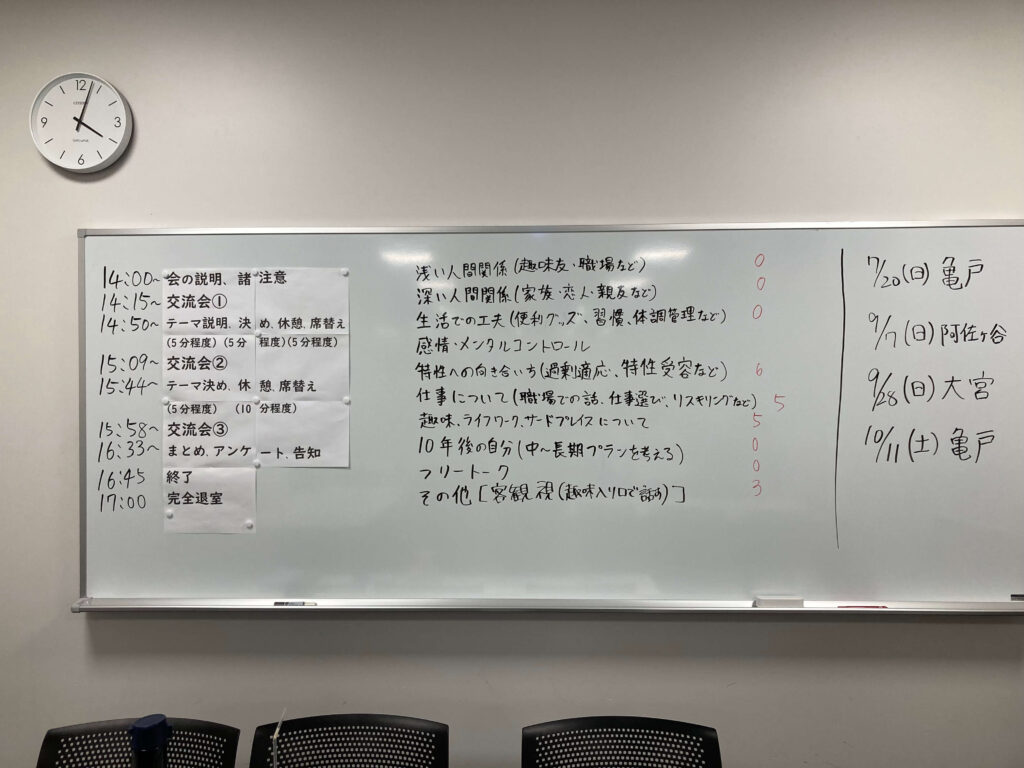 12
3
6
9
CITIZEN
14:00~ 会の説明、諸注意
14:15~ 交流会①
14:50~ テーマ説明、決め、休憩、席替え
(5分程度)(5分程度)(5分程度)
15:09~ 交流会②
15:44~ テーマ決め、休憩、席替え
(5分程度) (10分程度)
15:58~ 交流会③
16:33~ まとめ、アンケート、告知
16:45 終了
17:00 完全退室
浅い人間関係(趣味友・職場など) 0
深い人間関係(家族・恋人・親友など) 0
生活での工夫(便利グッズ、習慣、体調管理など) 0
感情・メンタルコントロール
特性への向き合い方(過剰適応、特性受容など) 6
仕事について(職場での話、仕事選び、リスキリングなど) 5
趣味、ライフワーク、サードプレイスについて 5
10年後の自分(中~長期プランを考える) 0
フリートーク 0
その他[客観視(趣味入り口で話す)] 3
7/20(日) 亀戸
9/7(日) 阿佐ヶ谷
9/28(日) 大宮
10/11(土) 亀戸